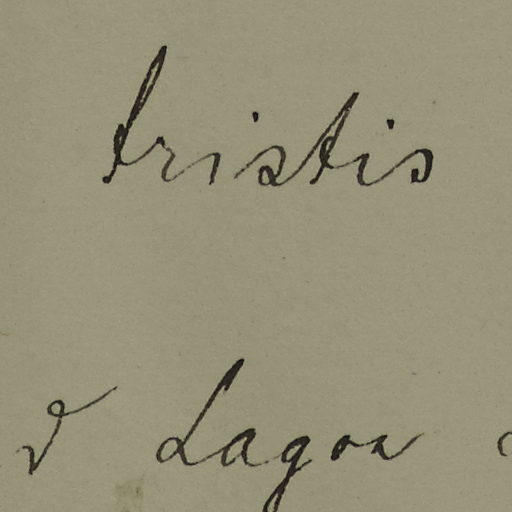 tristis
d Lagoa